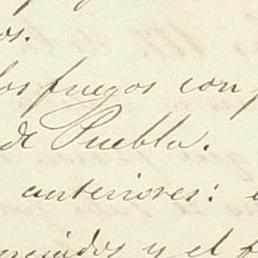 os.
los fuegos con
de Puebla.
anteriores:
y el